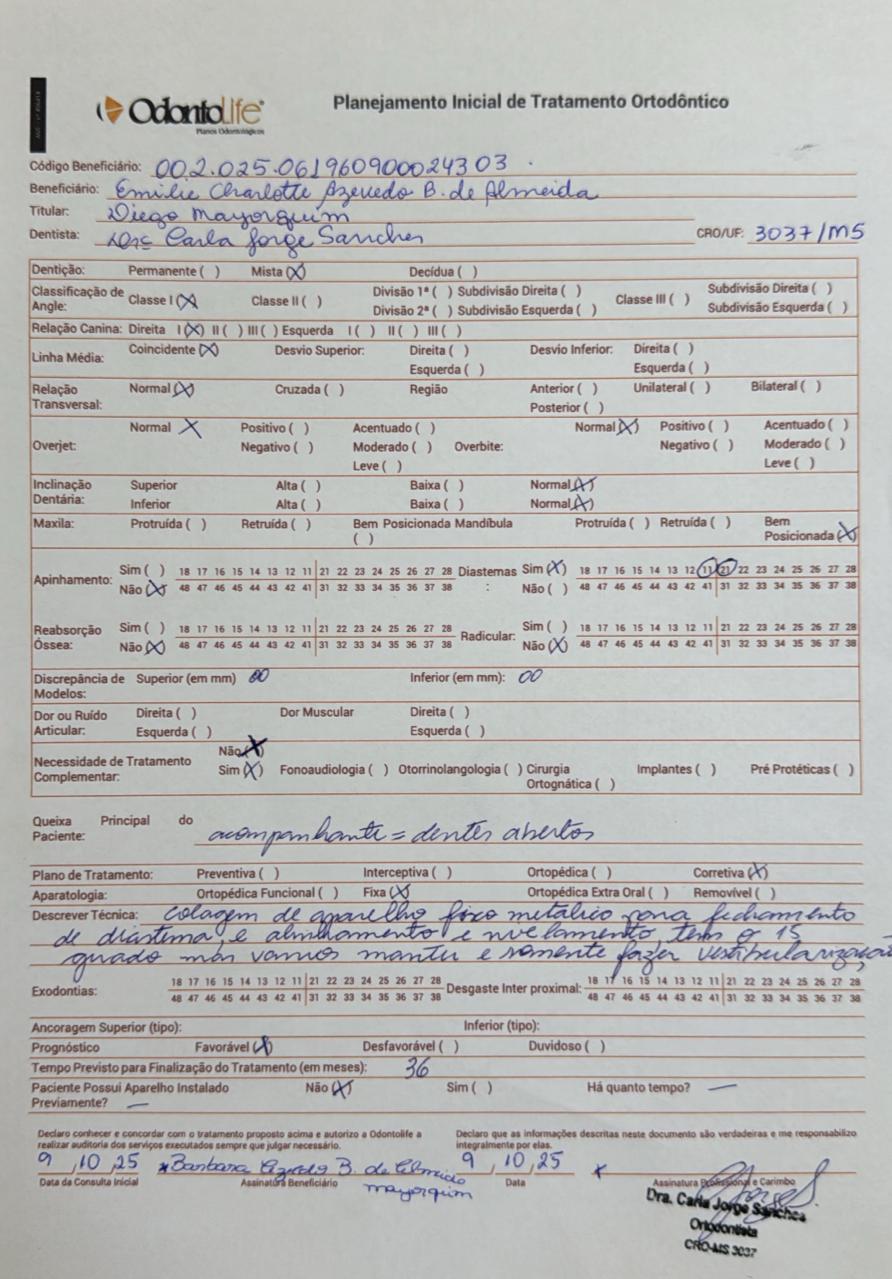 OdontoLife
Planos Odontológicos
Planejamento Inicial de Tratamento Ortodôntico
Código Beneficiário: 002.025.06196090002430 3 .
Beneficiário: Emilie Charlotte Azevedo B. de Almeida
Titular: Diego Mayorquim
Dentista: Drª Carla Jorge Sanches CRO/UF: 3037/MS
Dentição: Permanente ( ) Mista (X) Decídua ( )
Classificação de Angle: Classe I (X) Classe II ( ) Divisão 1ª ( ) Subdivisão Direita ( ) Classe III ( ) Subdivisão Direita ( )
Divisão 2ª ( ) Subdivisão Esquerda ( ) Subdivisão Esquerda ( )
Relação Canina: Direita I (X) II ( ) III ( ) Esquerda I ( ) II ( ) III ( )
Linha Média: Coincidente (X) Desvio Superior: Direita ( ) Desvio Inferior: Direita ( )
Esquerda ( ) Esquerda ( )
Relação Transversal: Normal (X) Cruzada ( ) Região Anterior ( ) Unilateral ( ) Bilateral ( )
Posterior ( )
Overjet: Normal X Positivo ( ) Acentuado ( ) Overbite: Normal (X) Positivo ( ) Acentuado ( )
Negativo ( ) Moderado ( ) Negativo ( ) Moderado ( )
Leve ( ) Leve ( )
Inclinação Dentária: Superior Alta ( ) Baixa ( ) Normal (X)
Inferior Alta ( ) Baixa ( ) Normal (X)
Maxila: Protruída ( ) Retruída ( ) Bem Posicionada ( ) Mandíbula Protruída ( ) Retruída ( ) Bem Posicionada (X)
Apinhamento: Sim ( ) 18 17 16 15 14 13 12 11 21 22 23 24 25 26 27 28 Diastemas : Sim (X) 18 17 16 15 14 13 12 11 21 22 23 24 25 26 27 28
Não (X) 48 47 46 45 44 43 42 41 31 32 33 34 35 36 37 38 Não ( ) 48 47 46 45 44 43 42 41 31 32 33 34 35 36 37 38
Reabsorção Óssea: Sim ( ) 18 17 16 15 14 13 12 11 21 22 23 24 25 26 27 28 Radicular: Sim ( ) 18 17 16 15 14 13 12 11 21 22 23 24 25 26 27 28
Não (X) 48 47 46 45 44 43 42 41 31 32 33 34 35 36 37 38 Não (X) 48 47 46 45 44 43 42 41 31 32 33 34 35 36 37 38
Discrepância de Modelos: Superior (em mm) 00 Inferior (em mm): 00
Dor ou Ruído Articular: Direita ( ) Dor Muscular Direita ( )
Esquerda ( ) Esquerda ( )
Necessidade de Tratamento Complementar: Não (X)
Sim (X) Fonoaudiologia ( ) Otorrinolangologia ( ) Cirurgia Ortognática ( ) Implantes ( ) Pré Protéticas ( )
Queixa Principal do Paciente: acompanhante = dentes abertos
Plano de Tratamento: Preventiva ( ) Interceptiva ( ) Ortopédica ( ) Corretiva (X)
Aparatologia: Ortopédica Funcional ( ) Fixa (X) Ortopédica Extra Oral ( ) Removível ( )
Descrever Técnica: colagem de aparelho fixo metálico para fechamento
de diastema, e alinhamento e nivelamento, tem o 15
girado mas vamos manter e somente fazer vestibularização
Exodontias: 18 17 16 15 14 13 12 11 21 22 23 24 25 26 27 28 Desgaste Inter proximal: 18 17 16 15 14 13 12 11 21 22 23 24 25 26 27 28
48 47 46 45 44 43 42 41 31 32 33 34 35 36 37 38 48 47 46 45 44 43 42 41 31 32 33 34 35 36 37 38
Ancoragem Superior (tipo): Inferior (tipo):
Prognóstico Favorável (X) Desfavorável ( ) Duvidoso ( )
Tempo Previsto para Finalização do Tratamento (em meses): 36
Paciente Possui Aparelho Instalado Não (X) Sim ( ) Há quanto tempo? —
Previamente? —
Declaro conhecer e concordar com o tratamento proposto acima e autorizo a Odontolife a Declaro que as informações descritas neste documento são verdadeiras e me responsabilizo
realizar auditoria dos serviços executados sempre que julgar necessário. integralmente por elas.
9 , 10 , 25 x Barbara Azevedo B. de Almeida 9 , 10 , 25 x
mayorquim
Data da Consulta Inicial Assinatura Beneficiário Data Assinatura Profissional e Carimbo
Dra. Carla Jorge Sanches
Ortodontista
CRO-MS 3037